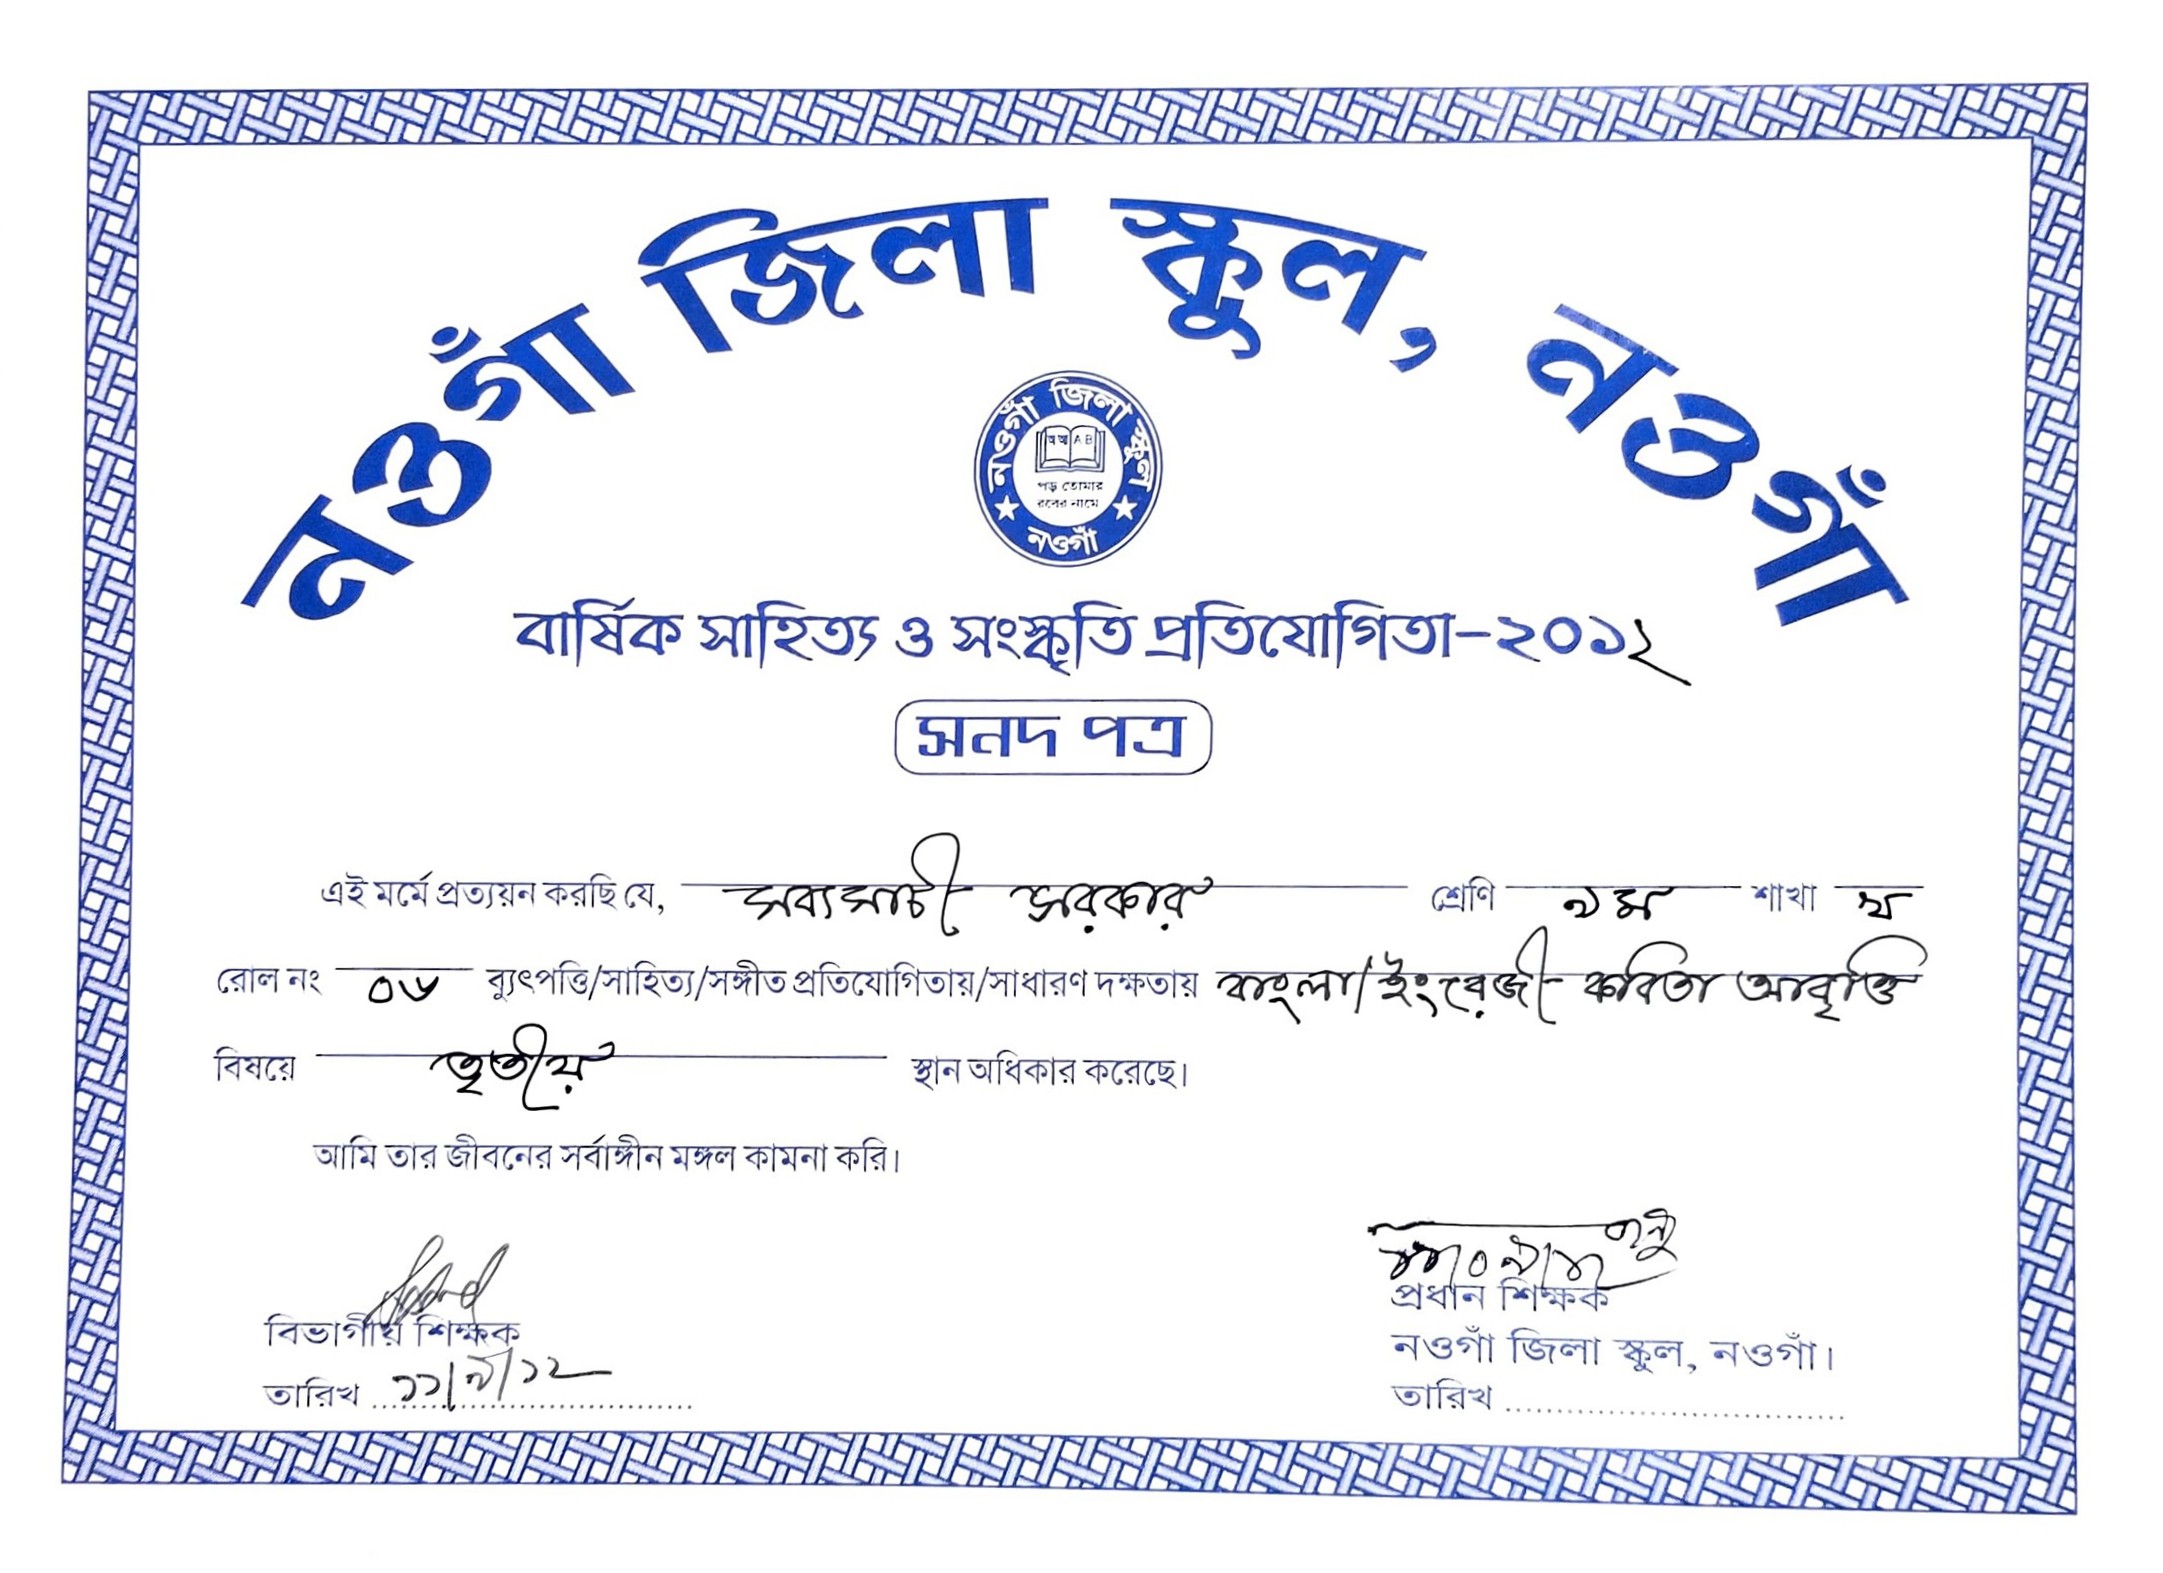 নওগাঁ জিলা স্কুল, নওগাঁ
নওগাঁ জিলা স্কুল
অ আ A B
পড় তোমার
রবের নামে
নওগাঁ
বার্ষিক সাহিত্য ও সংস্কৃতি প্রতিযোগিতা-২০১২
সনদ পত্র
এই মর্মে প্রত্যয়ন করছি যে, সব্যসাচী সরকার শ্রেণি ৯ম শাখা খ
রোল নং ০৬ ব্যুৎপত্তি/সাহিত্য/সঙ্গীত প্রতিযোগিতায়/সাধারণ দক্ষতায় বাংলা/ইংরেজী কবিতা আবৃত্তি
বিষয়ে তৃতীয় স্থান অধিকার করেছে।
আমি তার জীবনের সর্বাঙ্গীন মঙ্গল কামনা করি।
বিভাগীয় শিক্ষক
তারিখ ১১/৯/১২
প্রধান শিক্ষক
নওগাঁ জিলা স্কুল, নওগাঁ।
তারিখ